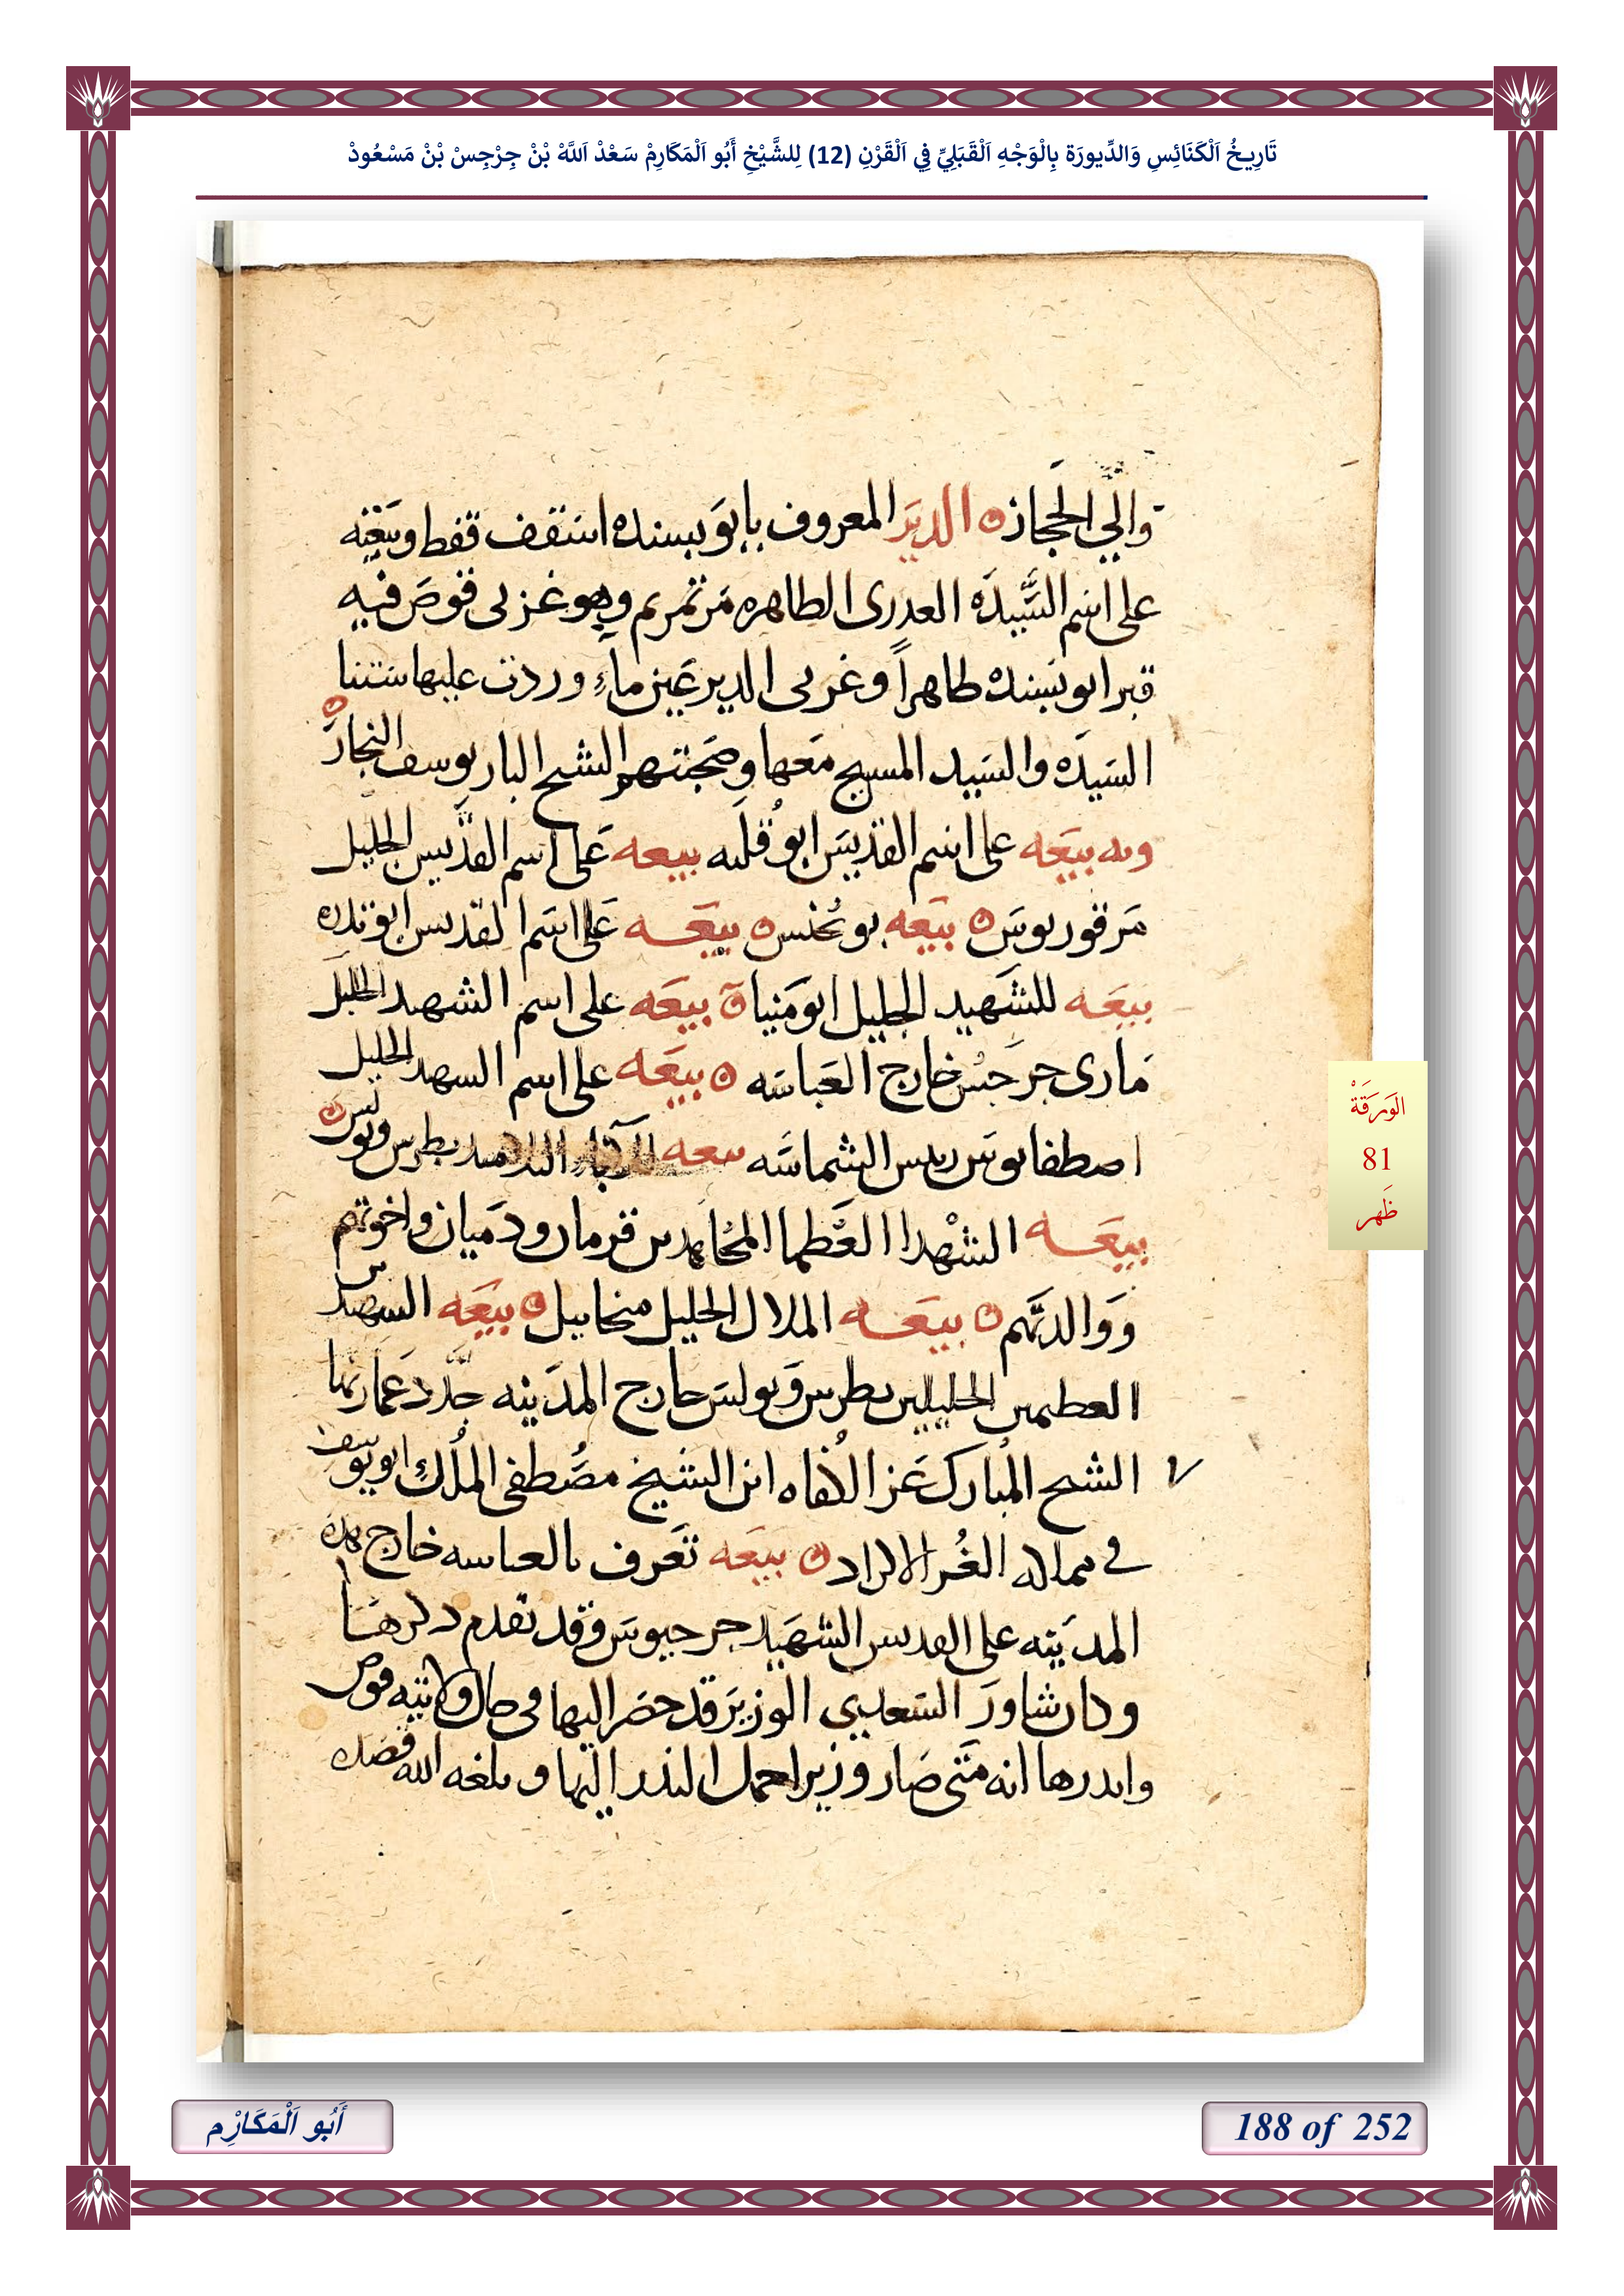 تَارِيخُ اَلْكَنَائِسِ وَالدِّيورَة بِالْوَجْهِ اَلْقَبَلِيِّ فِي اَلْقَرْنِ (12) لِلشَّيْخِ أَبُو اَلْمَكَارِمْ سَعْدْ اَللَّهْ بْنْ جِرْجِسْ بْنْ مَسْعُودْ
والي الحجاز الدير المعروف بابو بسنده اسقف قفط وبيعته
على اسم السيده العدرى الطاهره مرتمريم وهو غربى قوص فيه
قبر ابو بسنده طاهراً وغربى الدير عين ماء وردت عليها ستنا
السيده والسيد المسيح معها وصحبتهم الشيح البار يوسف النجار
وبه بيعه على اسم القديس ابو قلته بيعه على اسم القديس الجليل
مرقوريوس بيعه بو يحنس بيعه على اسم القديس ابو
بيعه للشهيد الجليل ابو مينا بيعه على اسم الشهيد الجليل
مارى جرجس خارج العباسه بيعه على اسم السهيد الجليل
اصطفانوس ريس الشماسه بيعه للآباء التلاميد بطرس وبولس
بيعه الشهدا العظما المجاهدين قزمان ودميان واخوتهم
ووالدتهم بيعه الملاك الجليل ميخاييل بيعه السهيدين
العطيمين الجليلين بطرس وبولس خارج المدينه جدد عمارتها
الشيح المبارك عز الكفاه ابن الشيخ مصطفى الملك ابو يوسف
في مملكه الغز الاكراد بيعه تعرف بالعباسه خارج هده
المدينه على القديس الشهيد جرجيوس وقد تقدم دكرها
وكان شاور السعدي الوزير قد حضر اليها فى حال ولايته قوص
واندرها انه متى صار وزيرا حمل الندر اليها وبلغه الله قصده
الوَرَقَةْ
81
ظَهر
أَبُو اَلْمَكَارِْم
188 of 252